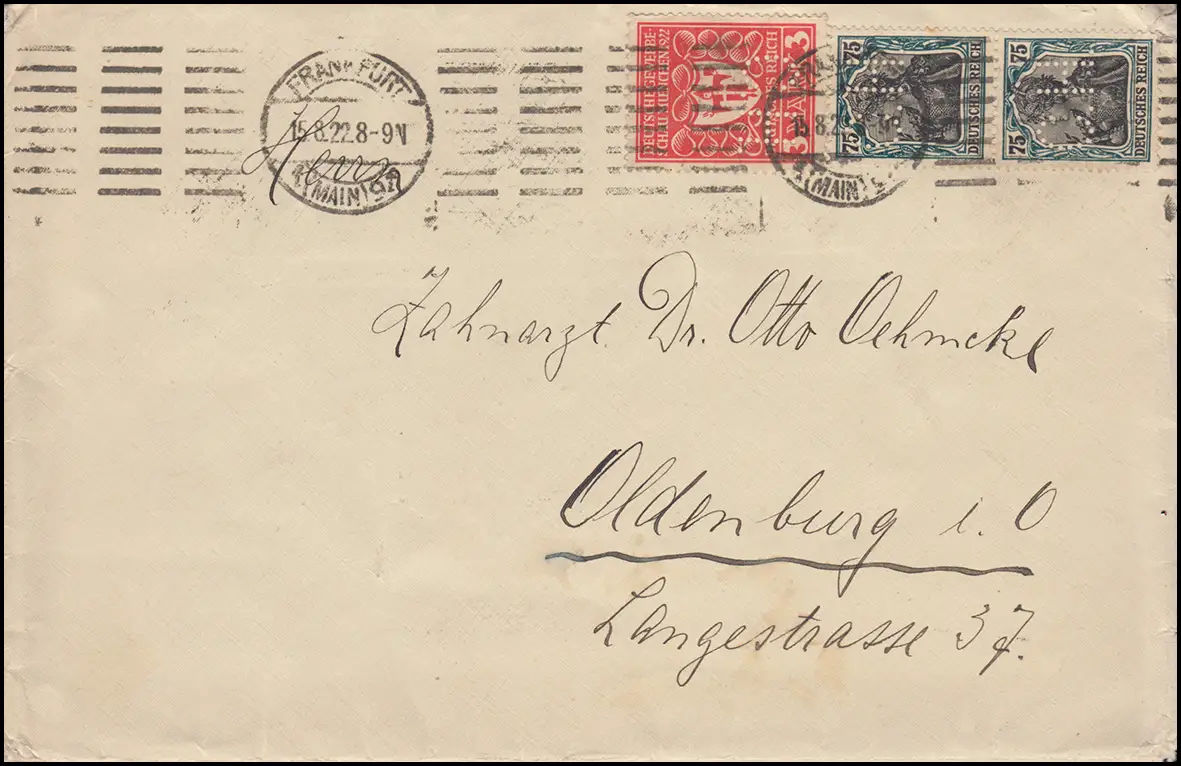 FRANKFURT
15.8.22.8-9N
(MAIN)
Herrn
DEUTSCHE GEWERBE-
SCHAU MÜNCHEN 1922
3 MARK 3
15.8.22
(MAIN)
75 75
DEUTSCHES REICH
75 75
DEUTSCHES REICH
Zahnarzt Dr. Otto Oehmcke
Oldenburg i. O
Langestrasse 37.